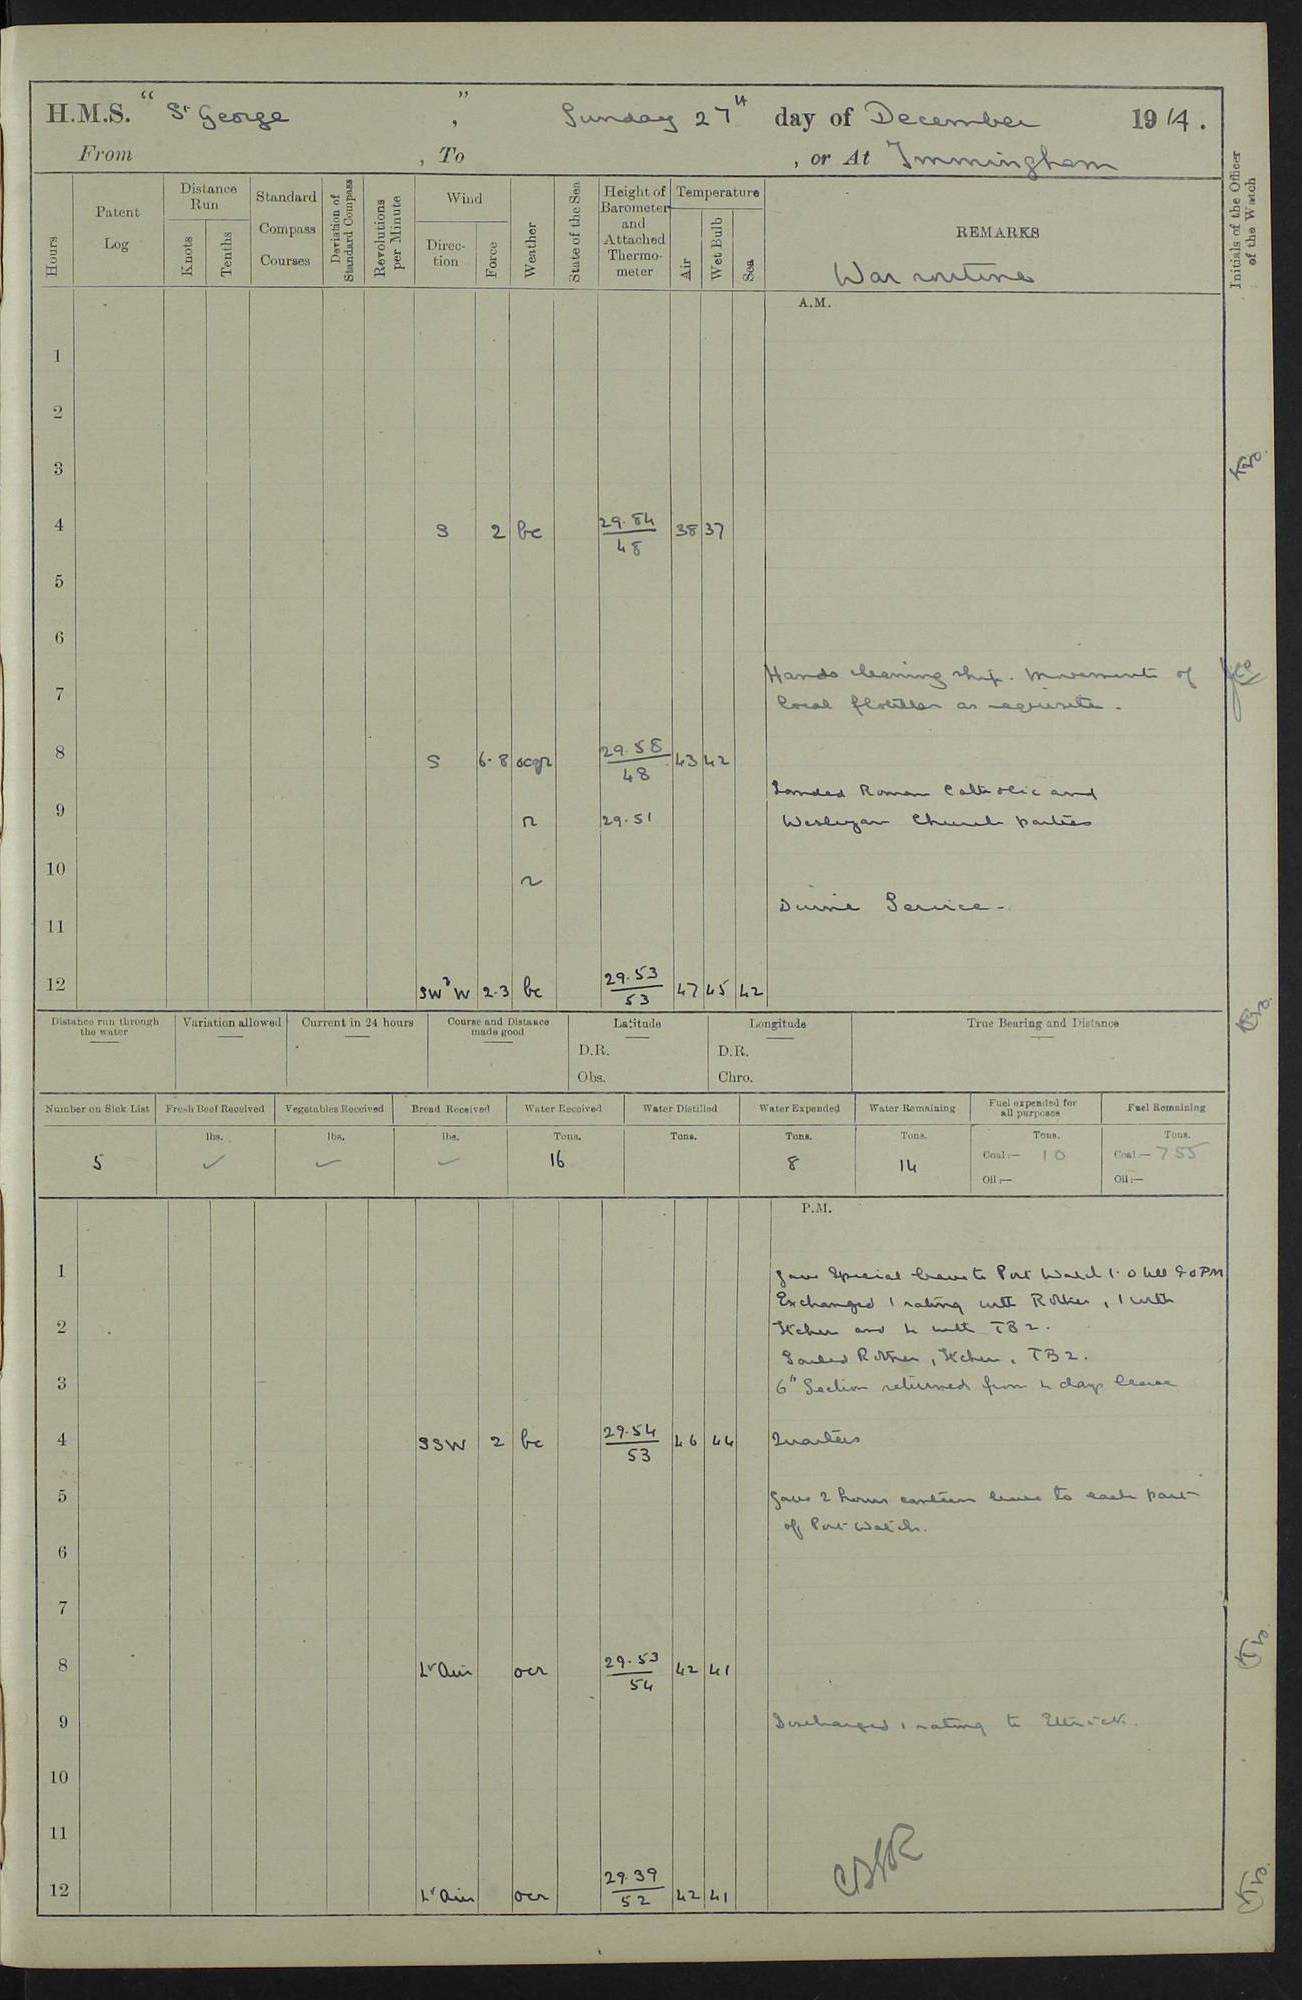 H.M.S. " St George " , Sunday 27th day of December 1914.
From , To , or At Immingham
Hours
Patent Log
Distance Run
Knots
Tenths
Standard Compass Courses
Deviation of Standard Compass
Revolutions per Minute
Wind
Direc-tion
Force
Weather
State of the Sea
Height of Barometer and Attached Thermo-meter
Temperature
Air
Wet Bulb
Sea
REMARKS
War routine
Initials of the Officer of the Watch
A.M.
1
2
3
4 S 2 bc 29.84 48 38 37
5
6
Hands cleaning ship. Movements of
7 local flotillas as requisite.
8 S 6-8 ocqr 29.58 48 43 42
Landed Roman Catholic and
9 r 29.51 Wesleyan Church parties
10 r
Divine Service -
11
12 SW b W 2.3 bc 29.53 53 47 45 42
Distance run through the water
Variation allowed
Current in 24 hours
Course and Distance made good
Latitude
D.R.
Obs.
Longitude
D.R.
Chro.
True Bearing and Distance
Number on Sick List
Fresh Beef Received
Vegetables Received
Bread Received
Water Received
Water Distilled
Water Expended
Water Remaining
Fuel expended for all purposes
Fuel Remaining
lbs. lbs. lbs. Tons. Tons. Tons. Tons. Tons. Tons.
5 16 8 14 Coal:— 10 Coal:— 755
Oil:— Oil:—
P.M.
1 Gave Special leave to Port Watch 1.0 till 9.0 PM
Exchanged 1 rating with Rother, 1 with
2 Itchen and 4 with TB 2.
Sailed Rother, Itchen, TB 2.
3 6" Section returned from 4 days leave
4 SSW 2 bc 29.54 53 46 44 Quarters
5 Gave 2 hours canteen leave to each part
of Port Watch.
6
7
8 Lt Airs ocr 29.53 54 42 41
9 Discharged 1 rating to Ettrick.
10
11
12 Lt Airs ocr 29.39 52 42 41